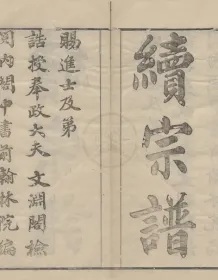 續宗譜
賜進士及第
誥授奉政大夫文淵閣檢
閱內閣中書前翰林院編